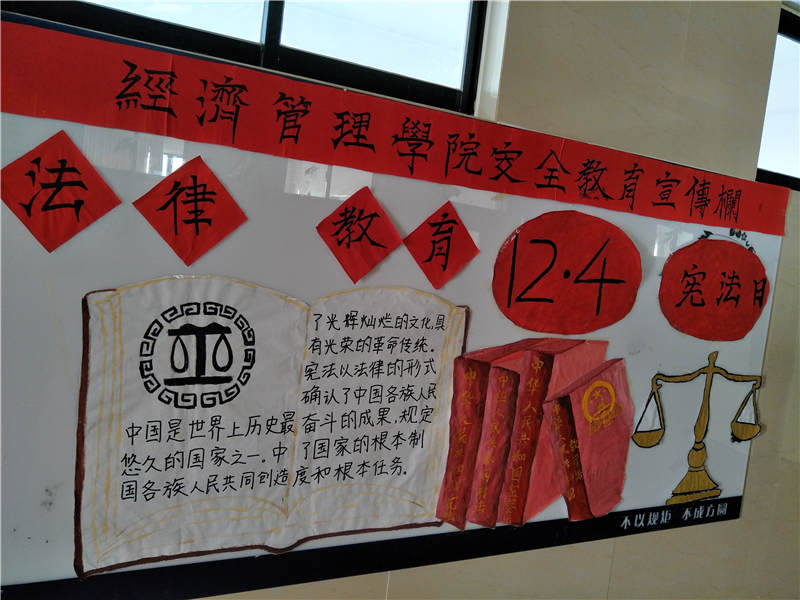 經濟管理學院安全教育宣傳欄
法律 教育
12·4
宪法日
中国是世界上历史最
悠久的国家之一.中
国各族人民共同创造
了光辉灿烂的文化,具
有光荣的革命传统.
宪法以法律的形式
确认了中国各族人民
奋斗的成果,规定
了国家的根本制
度和根本任务.
中华人民共和国
不以规矩 不成方圆